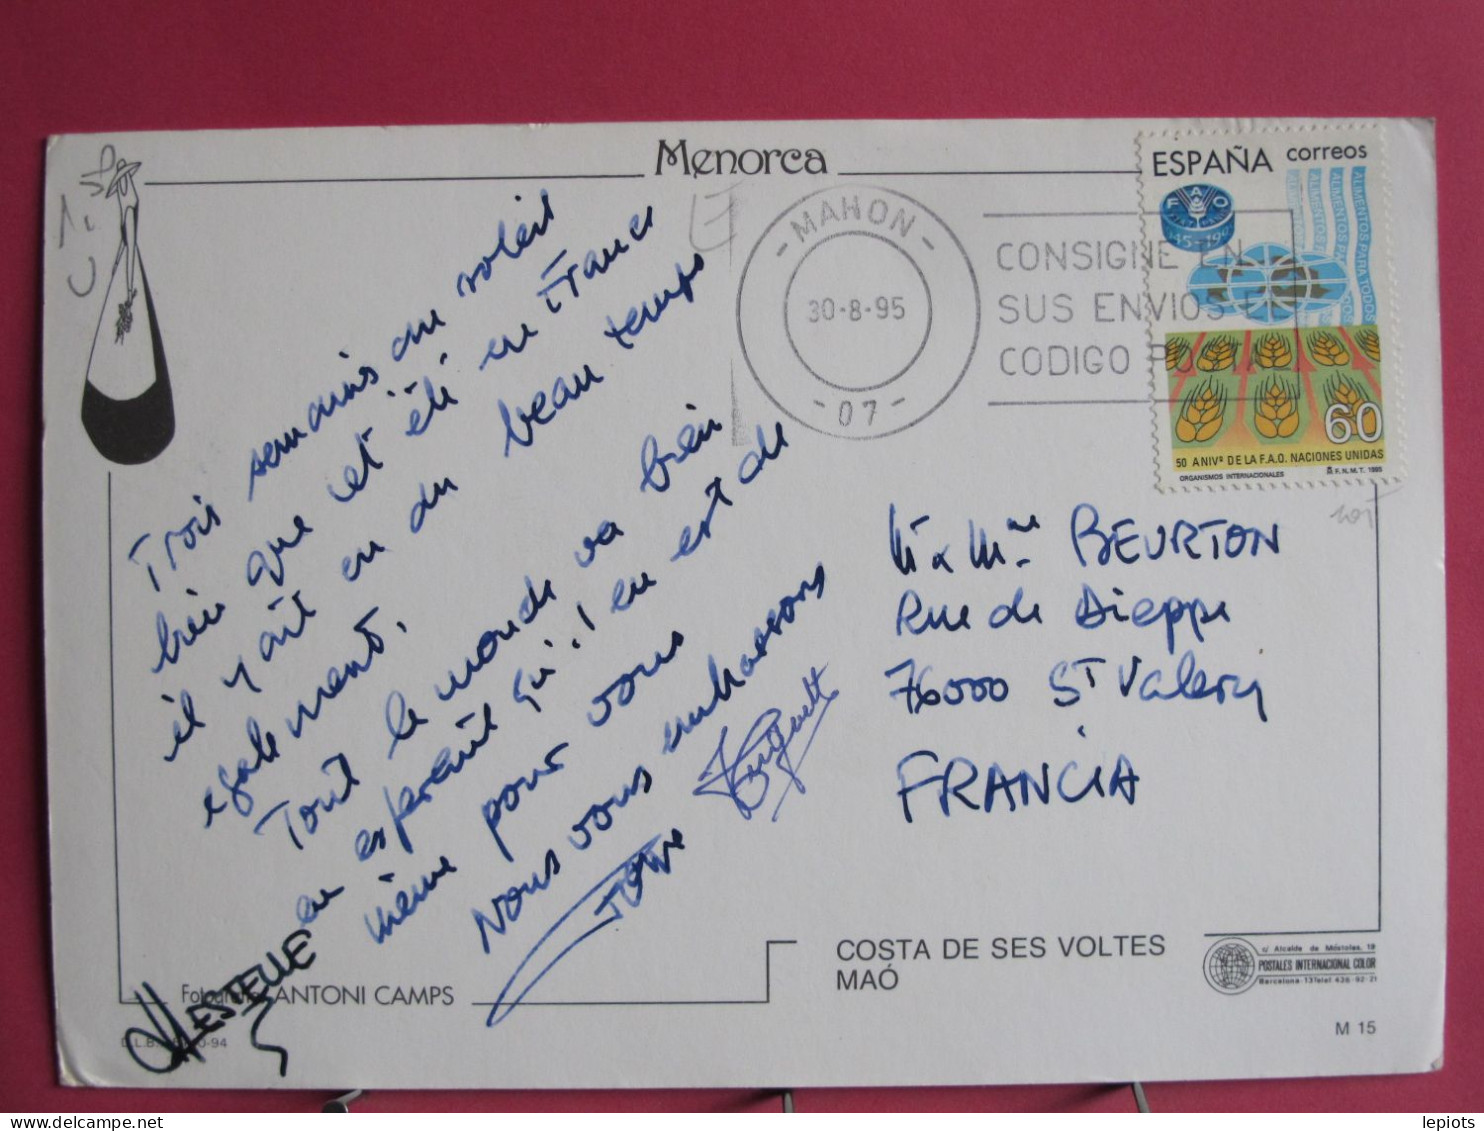 Menorca
ESPAÑA correos
FAO
1945-1995
ALIMENTOS PARA TODOS
60
50 ANIVº DE LA F.A.O. NACIONES UNIDAS
ORGANISMOS INTERNACIONALES F.N.M.T. 1995
- MAHON -
30-8-95
- 07 -
CONSIGNE EN
SUS ENVIOS E
CODIGO POSTAL
Trois semaines au soleil
bien que cet été en France
il y ait eu du beau temps
également.
Tout le monde va bien
en espérant qu'il en est de
même pour vous
Nous vous embrassons
Huguette
ESTELLE
M & Mme BEURTON
Rue de Dieppe
76000 St Valery
FRANCIA
Fotografia ANTONI CAMPS
COSTA DE SES VOLTES
MAÓ
c/ Alcalde de Móstoles, 19
POSTALES INTERNACIONAL COLOR
Barcelona-13 Telef 436-92-21
M 15
lepiots